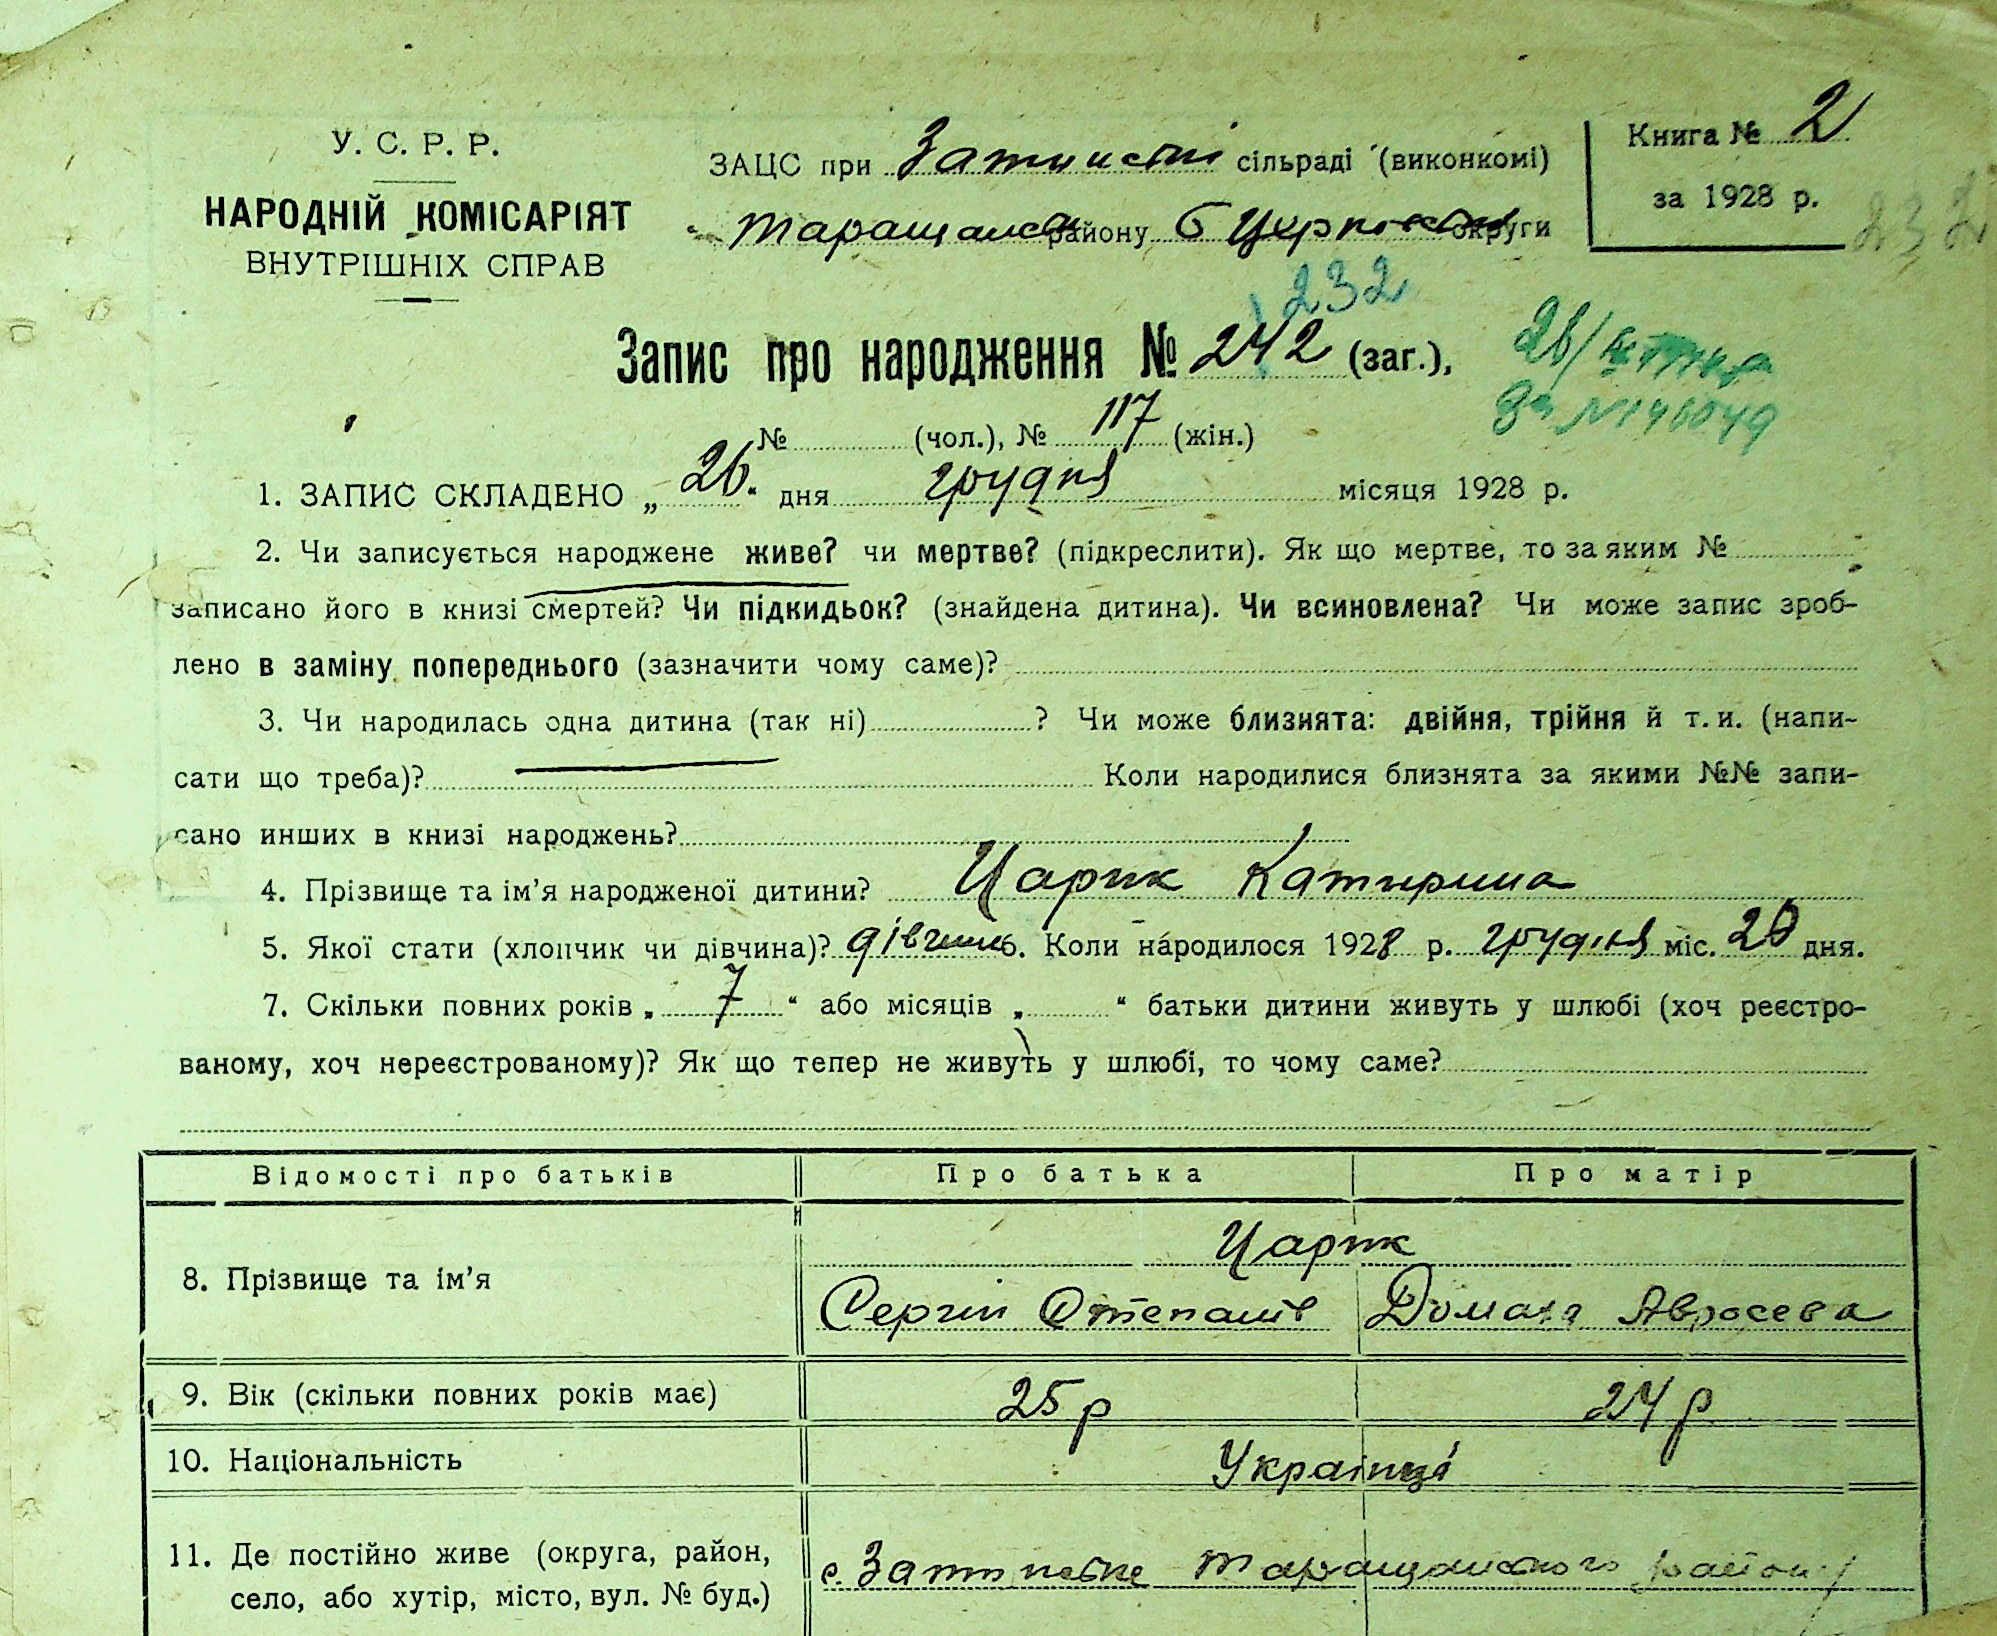 У. С. Р. Р.
НАРОДНІЙ КОМІСАРІЯТ
ВНУТРІШНІХ СПРАВ
ЗАЦС при сільраді (виконкомі)
району Б Церківської округи
Книга № 2
за 1928 р.
232
232
Запис про народження № 242 (заг.),
№ (чол.), № 117 (жін.)
1. ЗАПИС СКЛАДЕНО „ 26 “ дня грудня місяця 1928 р.
2. Чи записується народжене живе? чи мертве? (підкреслити). Як що мертве, то за яким №
записано його в книзі смертей? Чи підкидьок? (знайдена дитина). Чи всиновлена? Чи може запис зроб-
лено в заміну попереднього (зазначити чому саме)?
3. Чи народилась одна дитина (так ні) ? Чи може близнята: двійня, трійня й т. и. (напи-
сати що треба)? Коли народилися близнята за якими №№ запи-
сано инших в книзі народжень?
4. Прізвище та ім’я народженої дитини? Царик Катирина
5. Якої стати (хлопчик чи дівчина)? дівчина 6. Коли народилося 1928 р. грудня міс. 20 дня.
7. Скільки повних років „ 7 “ або місяців „ “ батьки дитини живуть у шлюбі (хоч реєстро-
ваному, хоч нереєстрованому)? Як що тепер не живуть у шлюбі, то чому саме?
Відомості про батьків Про батька Про матір
8. Прізвище та ім’я Царик
Сергій Степанів Домаха Авросева
9. Вік (скільки повних років має) 25 р 24 р
10. Національність Українці
11. Де постійно живе (округа, район,
село, або хутір, місто, вул. № буд.) с. Таращанського району